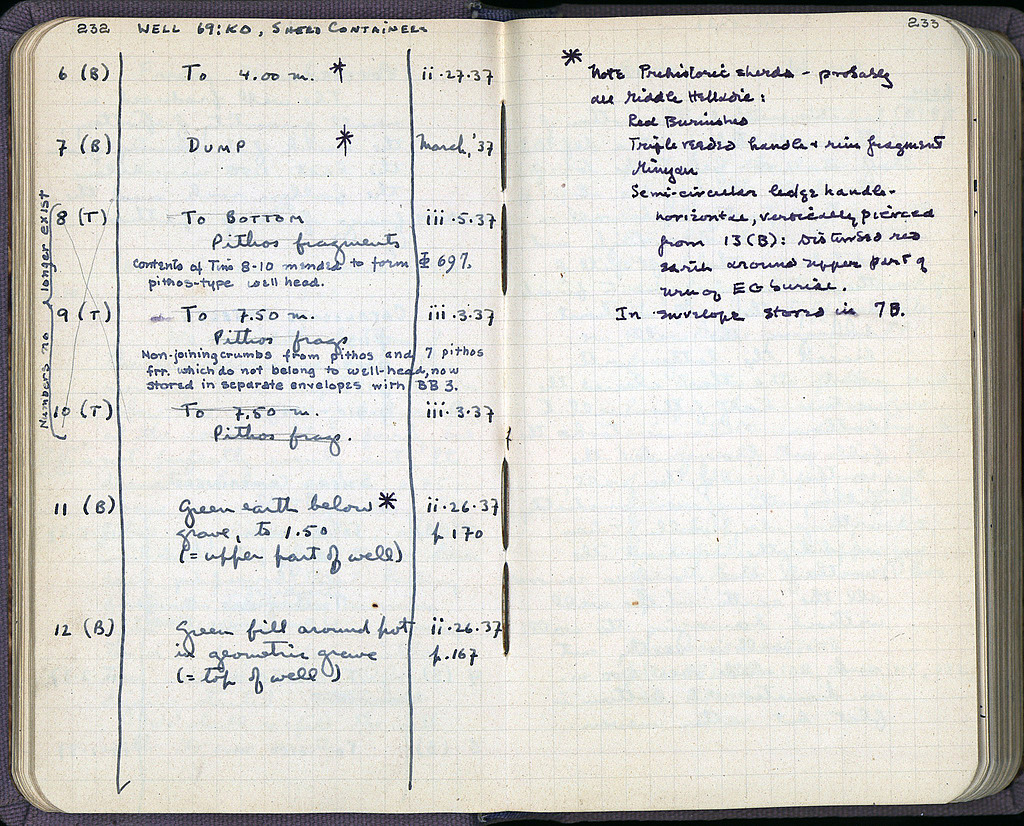 232 WELL 69:KO, SHERD CONTAINERS
6 (B) To 4.00 m. * ii·27·37
7 (B) DUMP * March, '37
Numbers no longer exist
8 (T) To BOTTOM iii·5·37
Pithos fragments
Contents of Tins 8-10 mended to form 697,
pithos-type well head.
9 (T) To 7.50 m. iii·3·37
Pithos frags
Non-joining crumbs from pithos and 7 pithos
frr. which do not belong to well-head, now
stored in separate envelopes with BB 3.
10 (T) To 7.50 m. iii·3·37
Pithos frag.
11 (B) Green earth below * ii·26·37
grave, to 1.50 p 170
(= upper part of well)
12 (B) Green fill around pot ii·26·37
in geometric grave p.167
(= top of well)
233
* Note Prehistoric sherds - probably
all Middle Helladic:
Red Burnished
Triple reeded handle + rim fragment
Minyan
Semi-circular ledge handle-
horizontal, vertically pierced
from 13 (B): Disturbed red
earth around upper part of
urn of EG burial.
In envelope stored in 7B.